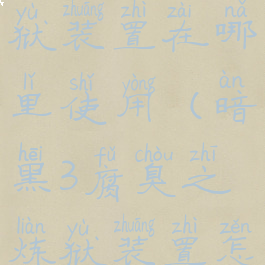 yù zhuāng zhì zài nǎ
狱装置在哪
lǐ shǐ yòng àn
里使用（暗
hēi fǔ chòu zhī
黑3腐臭之
liàn yù zhuāng zhì zěn
炼狱装置怎